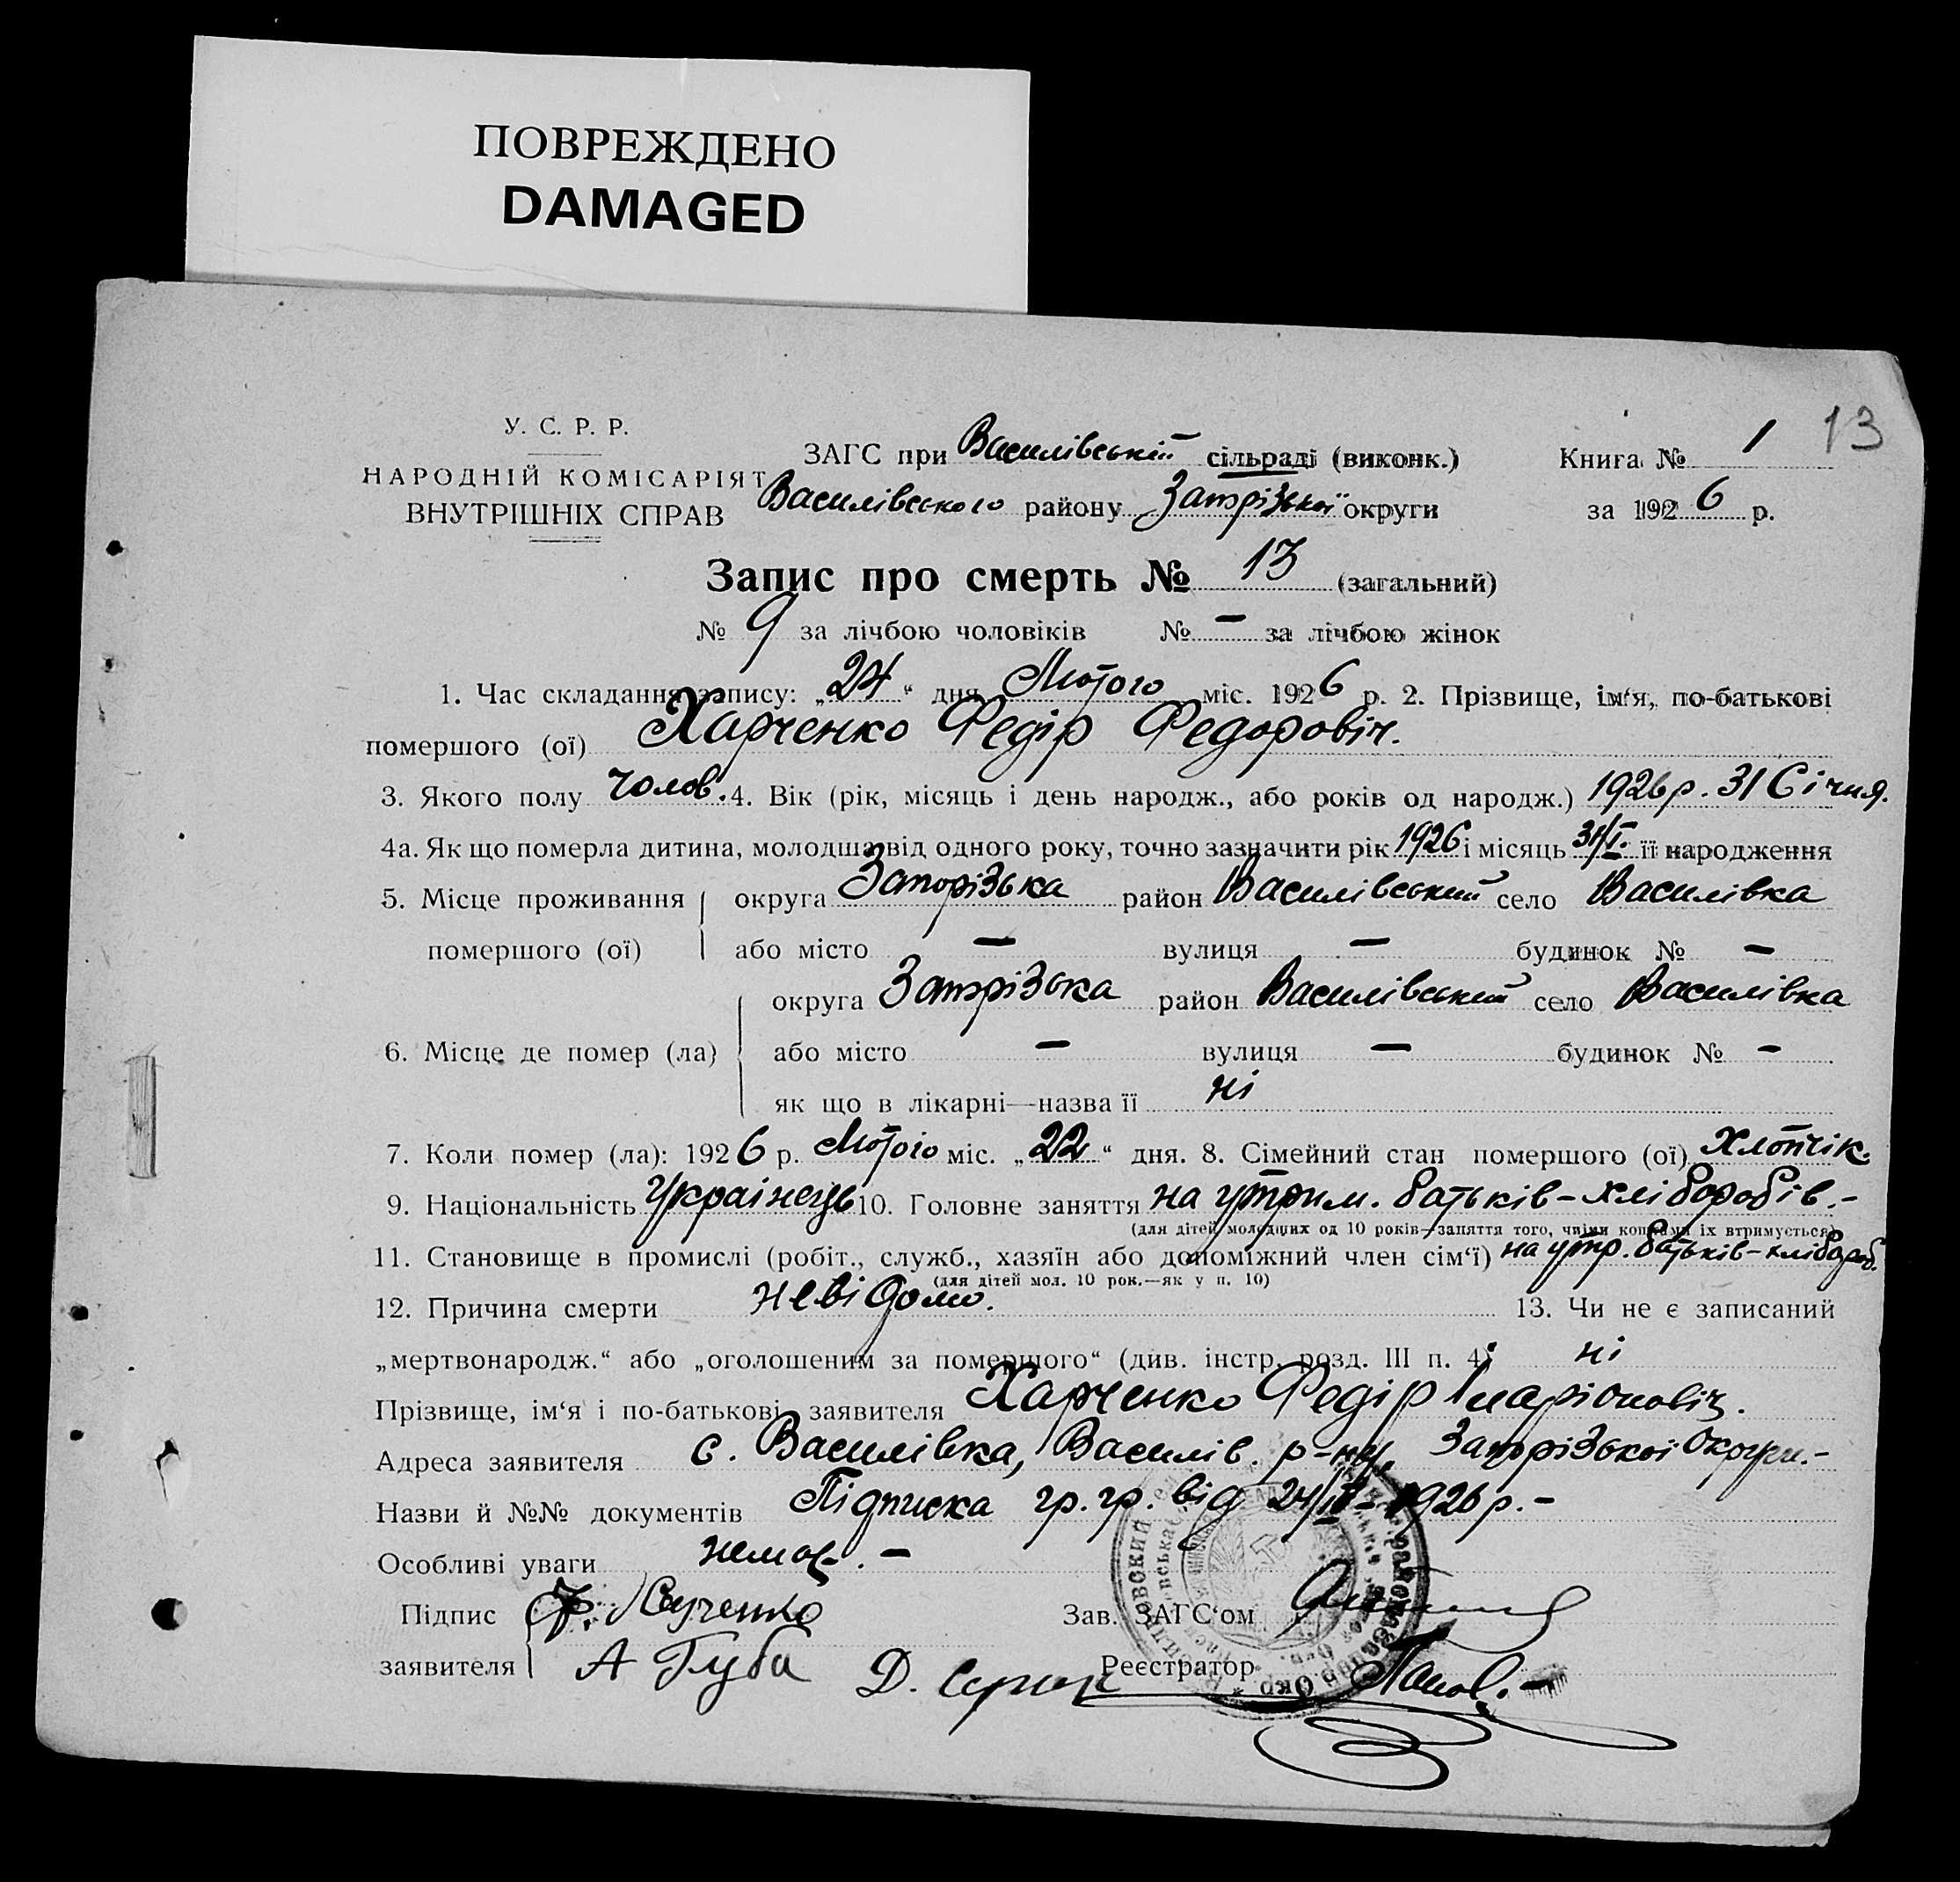 ПОВРЕЖДЕНО
DAMAGED
13
У. С. Р. Р.
НАРОДНІЙ КОМІСАРІЯТ
ВНУТРІШНІХ СПРАВ
ЗАГС при Василівській сільраді (виконк.)
Василівського району Запорізької округи
Книга № 1
за 1926 р.
Запис про смерть № 13 (загальний)
№ 9 за лічбою чоловіків № — за лічбою жінок
1. Час складання запису: „24“ дня Лютого міс. 1926 р. 2. Прізвище, ім‘я, по-батькові
помершого (ої) Харченко Федір Федоровіч.
3. Якого полу чолов. 4. Вік (рік, місяць і день народж., або років од народж.) 1926 р. 31 Січня.
4а. Як що померла дитина, молодша від одного року, точно зазначити рік 1926 і місяць 31/I. її народження
5. Місце проживання округа Запорізька район Василівський село Василівка
помершого (ої) або місто — вулиця — будинок № —
округа Запорізька район Василівський село Василівка
6. Місце де помер (ла) або місто — вулиця — будинок № —
як що в лікарні—назва її ні
7. Коли помер (ла): 1926 р. Лютого міс. „22“ дня. 8. Сімейний стан помершого (ої) хлопчік.
9. Національність Українець 10. Головне заняття на утрим. батьків-хліборобів.-
(для дітей молодших од 10 років—заняття того, чиїми коштами їх втримується)
11. Становище в промислі (робіт., служб., хазяїн або допоміжний член сім‘ї) на утр. батьків-хлібороб.
(для дітей мол. 10 рок.—як у п. 10)
12. Причина смерти невідомо. 13. Чи не є записаний
„мертвонародж.“ або „оголошеним за помершого“ (див. інстр. розд. III п. 4) ні
Прізвище, ім‘я і по-батькові заявителя Харченко Федір Іларіоновіч.
Адреса заявителя с. Василівка, Василів. р-ну, Запорізької Округи.-
Назви й №№ документів Підписка гр. гр. від 24/II-1926 р.-
Особливі уваги немає.-
Підпис Ф.
Зав. ЗАГС‘ом
заявителя А Губа Д.
Реєстратор